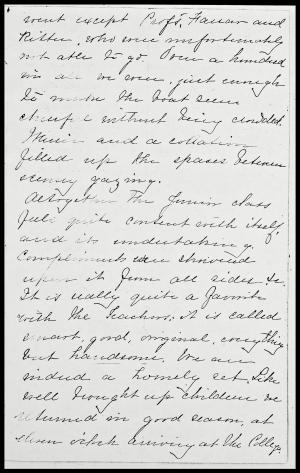 went except Profs. Farrar and
Ritter, who were unfortunately
not able to go. Over a hundred
in all we were, just enough
to make the boat seem
cheerful without being crowded.
Music and a collation
filled up the spaces between
scenery gazing.
Altogether the Junior class
felt quite content with itself
and its undertaking.
Compliments were showered
upon it from all sides &c.
It is really quite a favorite
with the teachers; it is called
smart, good, original, everything
but handsome. We are
indeed a homely set. Like
well brought up children we
returned in good season, at
eleven o'clock arriving at the College